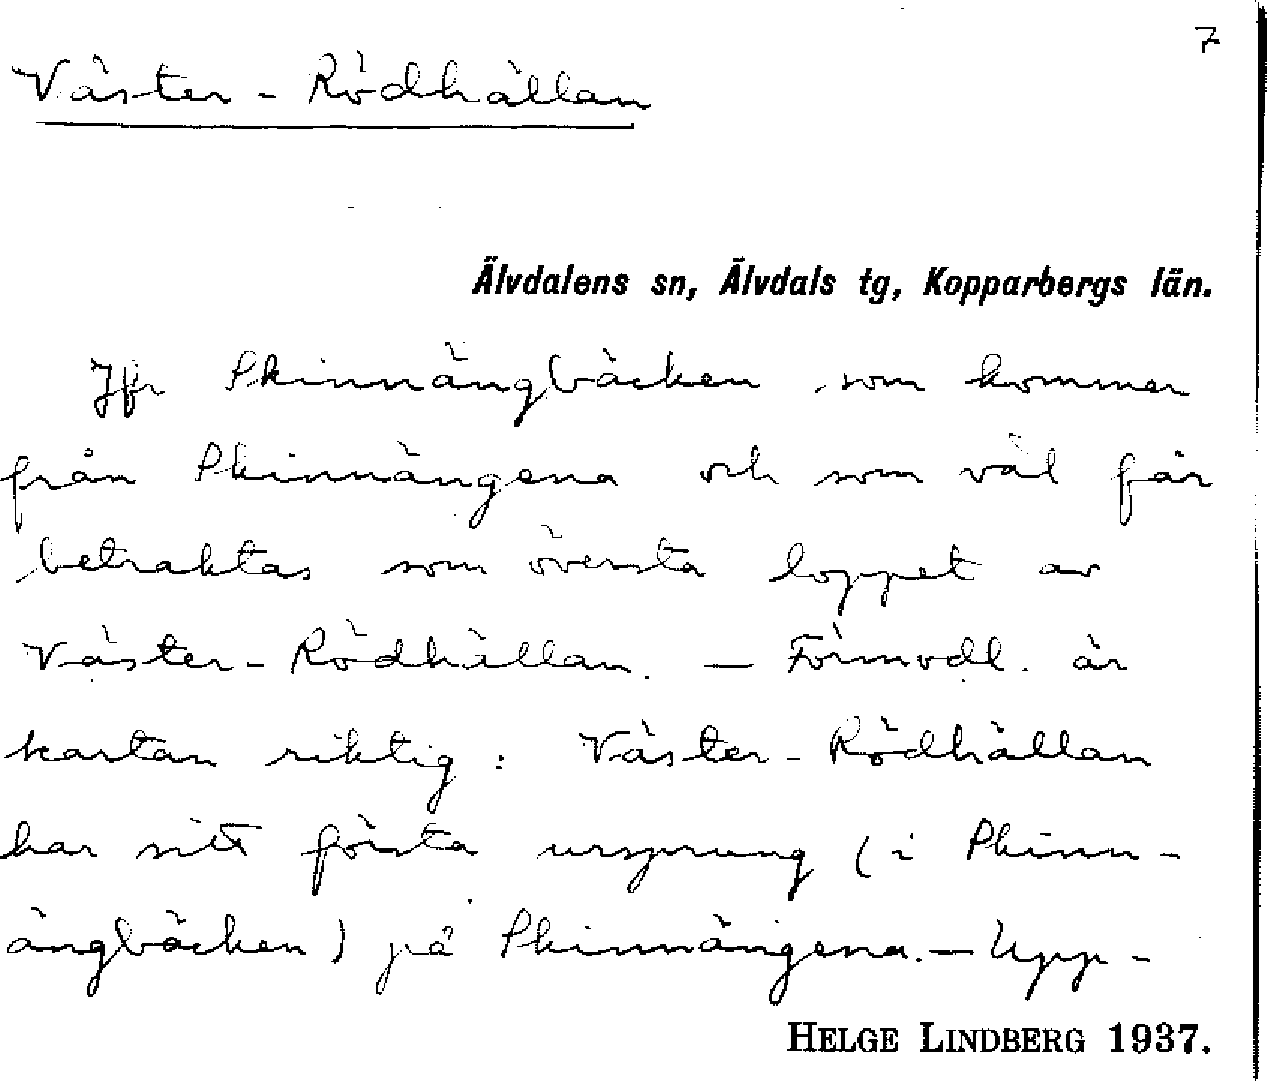 7
Väster-Rödhällan
Älvdalens sn, Älvdals tg, Kopparbergs län.
Jfr Skinnängbäcken som kommer
från Skinnängena och som väl får
betraktas som översta loppet av
Väster-Rödhällan. — Förmodl. är
kartan riktig: Väster-Rödhällan
har sitt första ursprung (i Skinn-
ängbäcken) på Skinnängena. — Upp-
HELGE LINDBERG 1937.